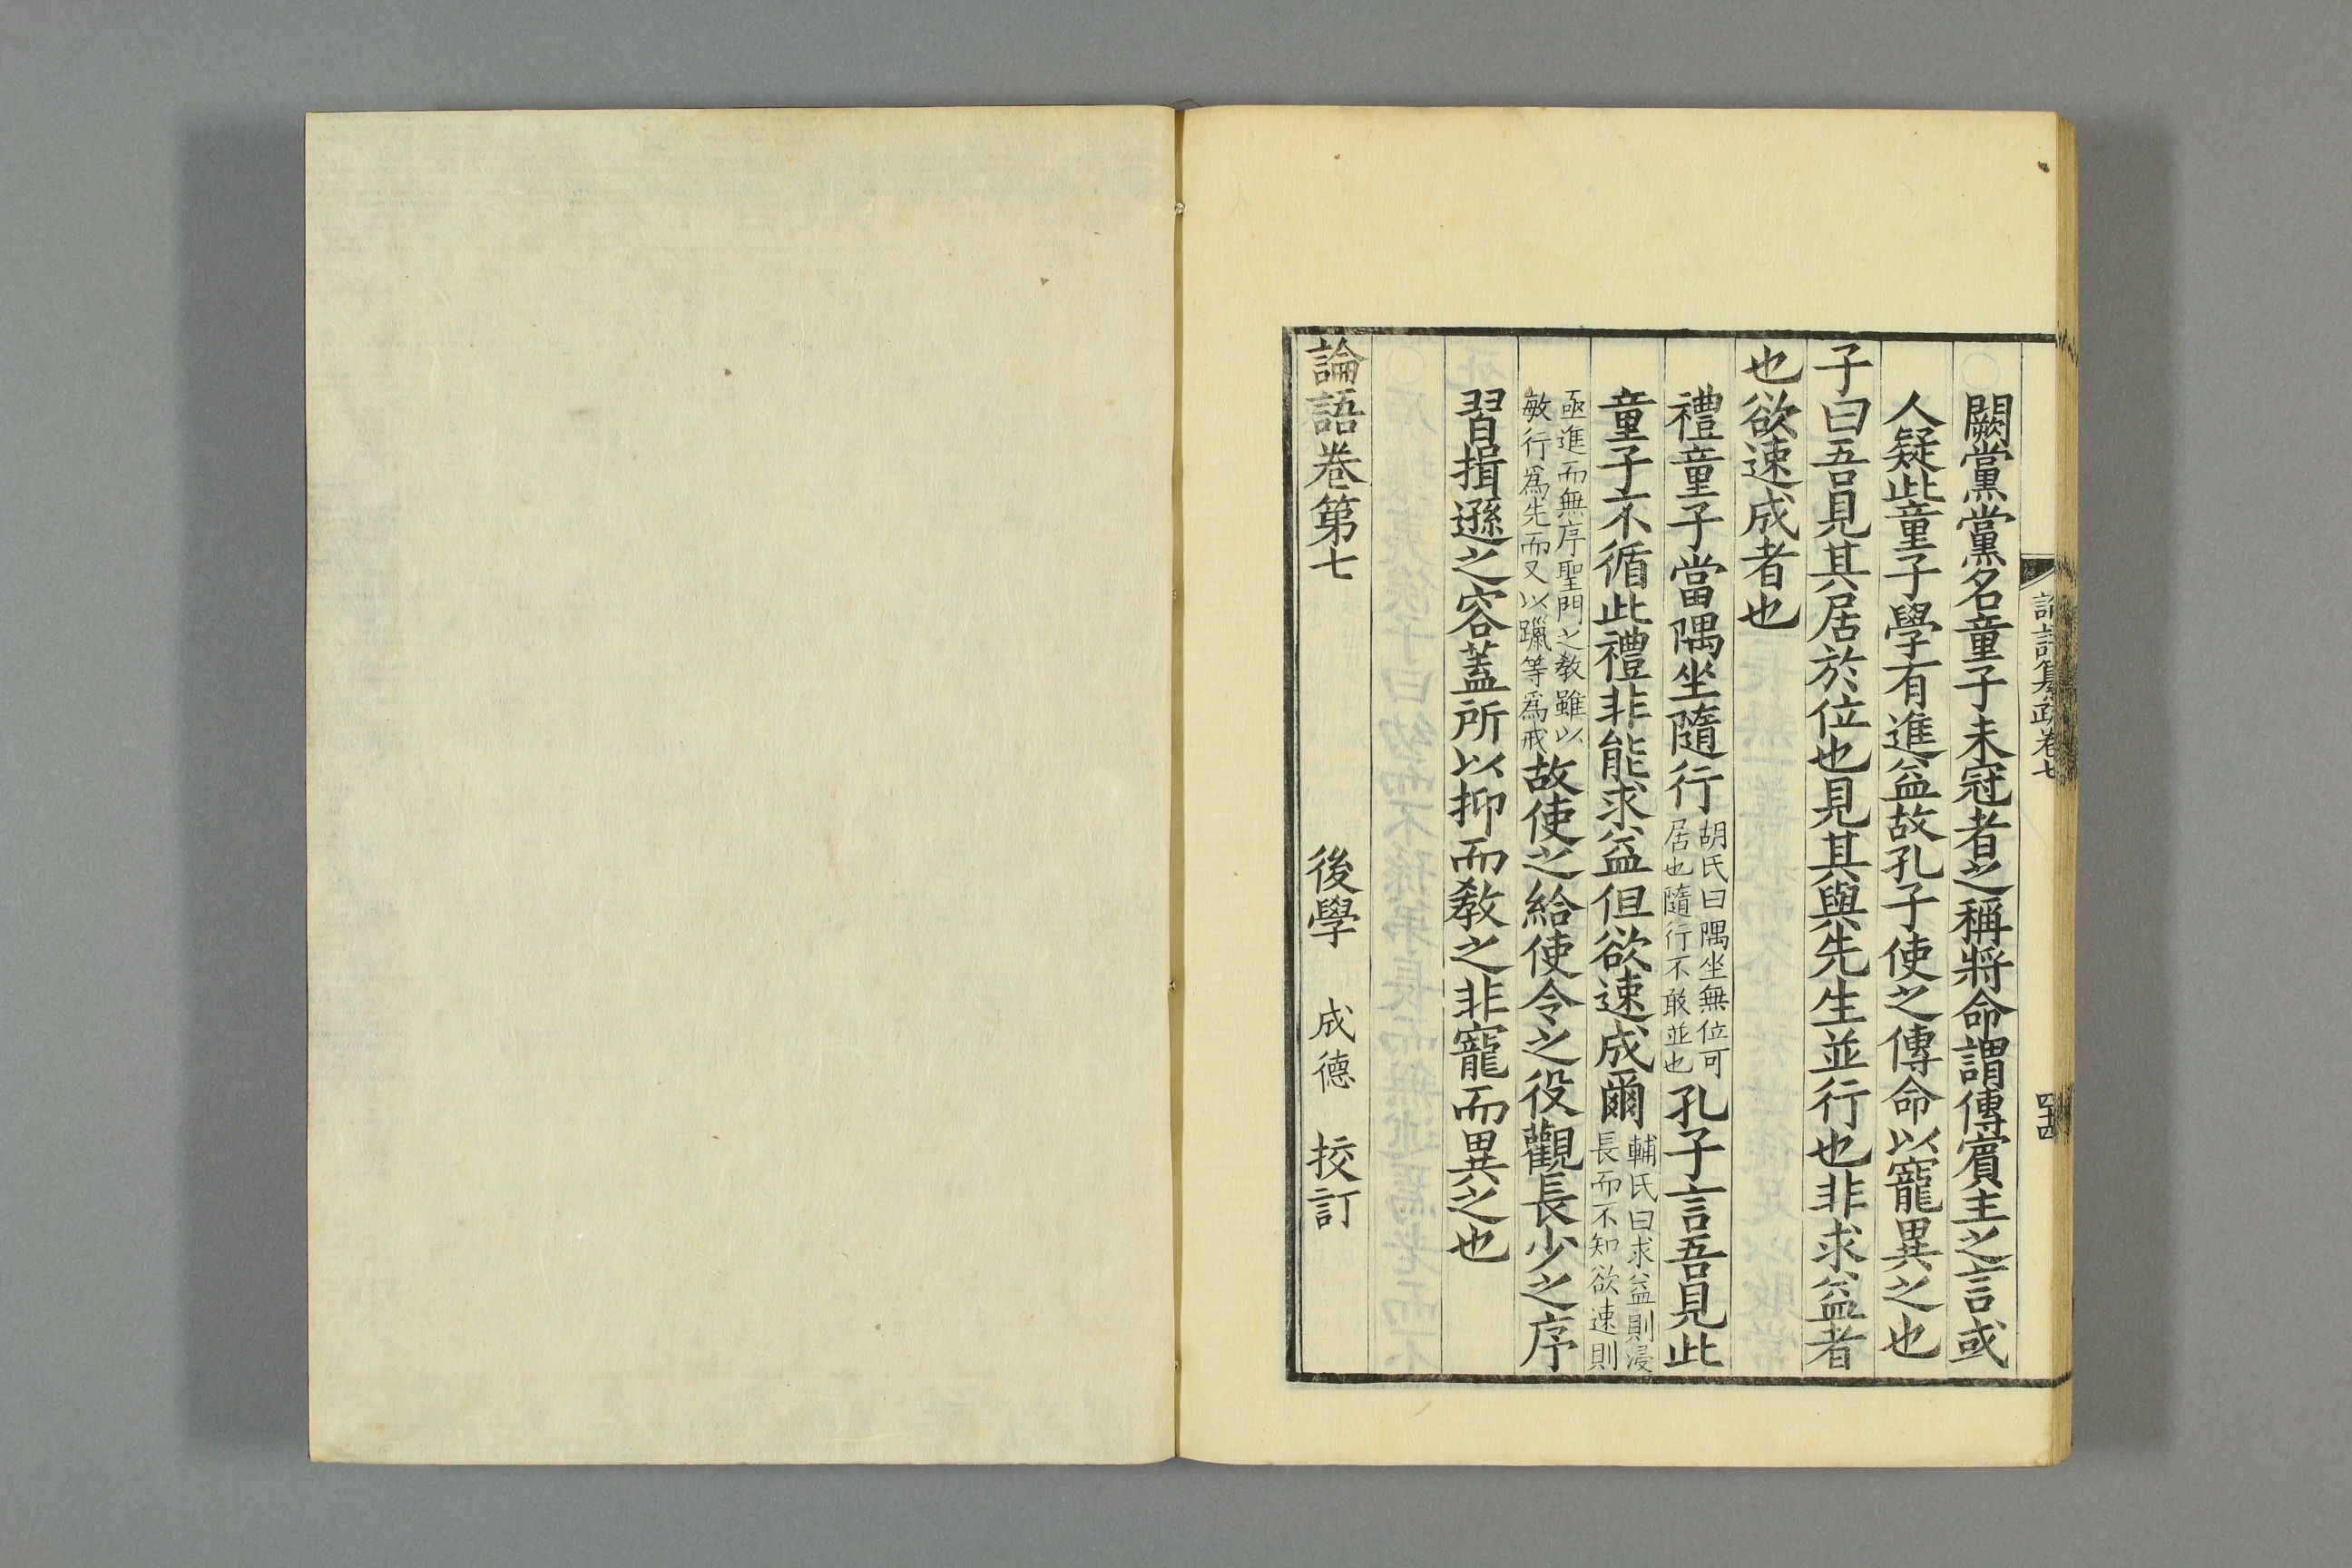 闕黨黨名童子未冠者之稱將命謂傳賔主之言或
人疑此童子學有進益故孔子使之傳命以寵異之也
子曰吾見其居於位也見其與先生並行也非求益者
也欲速成者也
禮童子當隅坐隨行胡氏曰隅坐無位可居也隨行不敢並也孔子言吾見此
童子不循此禮非能求益但欲速成爾輔氏曰求益則浸長而不知欲速則
亟進而無序聖門之教雖以敏行爲先而又以躐等爲戒故使之給使令之役觀長少之序
習揖遜之容蓋所以抑而教之非寵而異之也
論語卷第七 後學 成德 挍訂